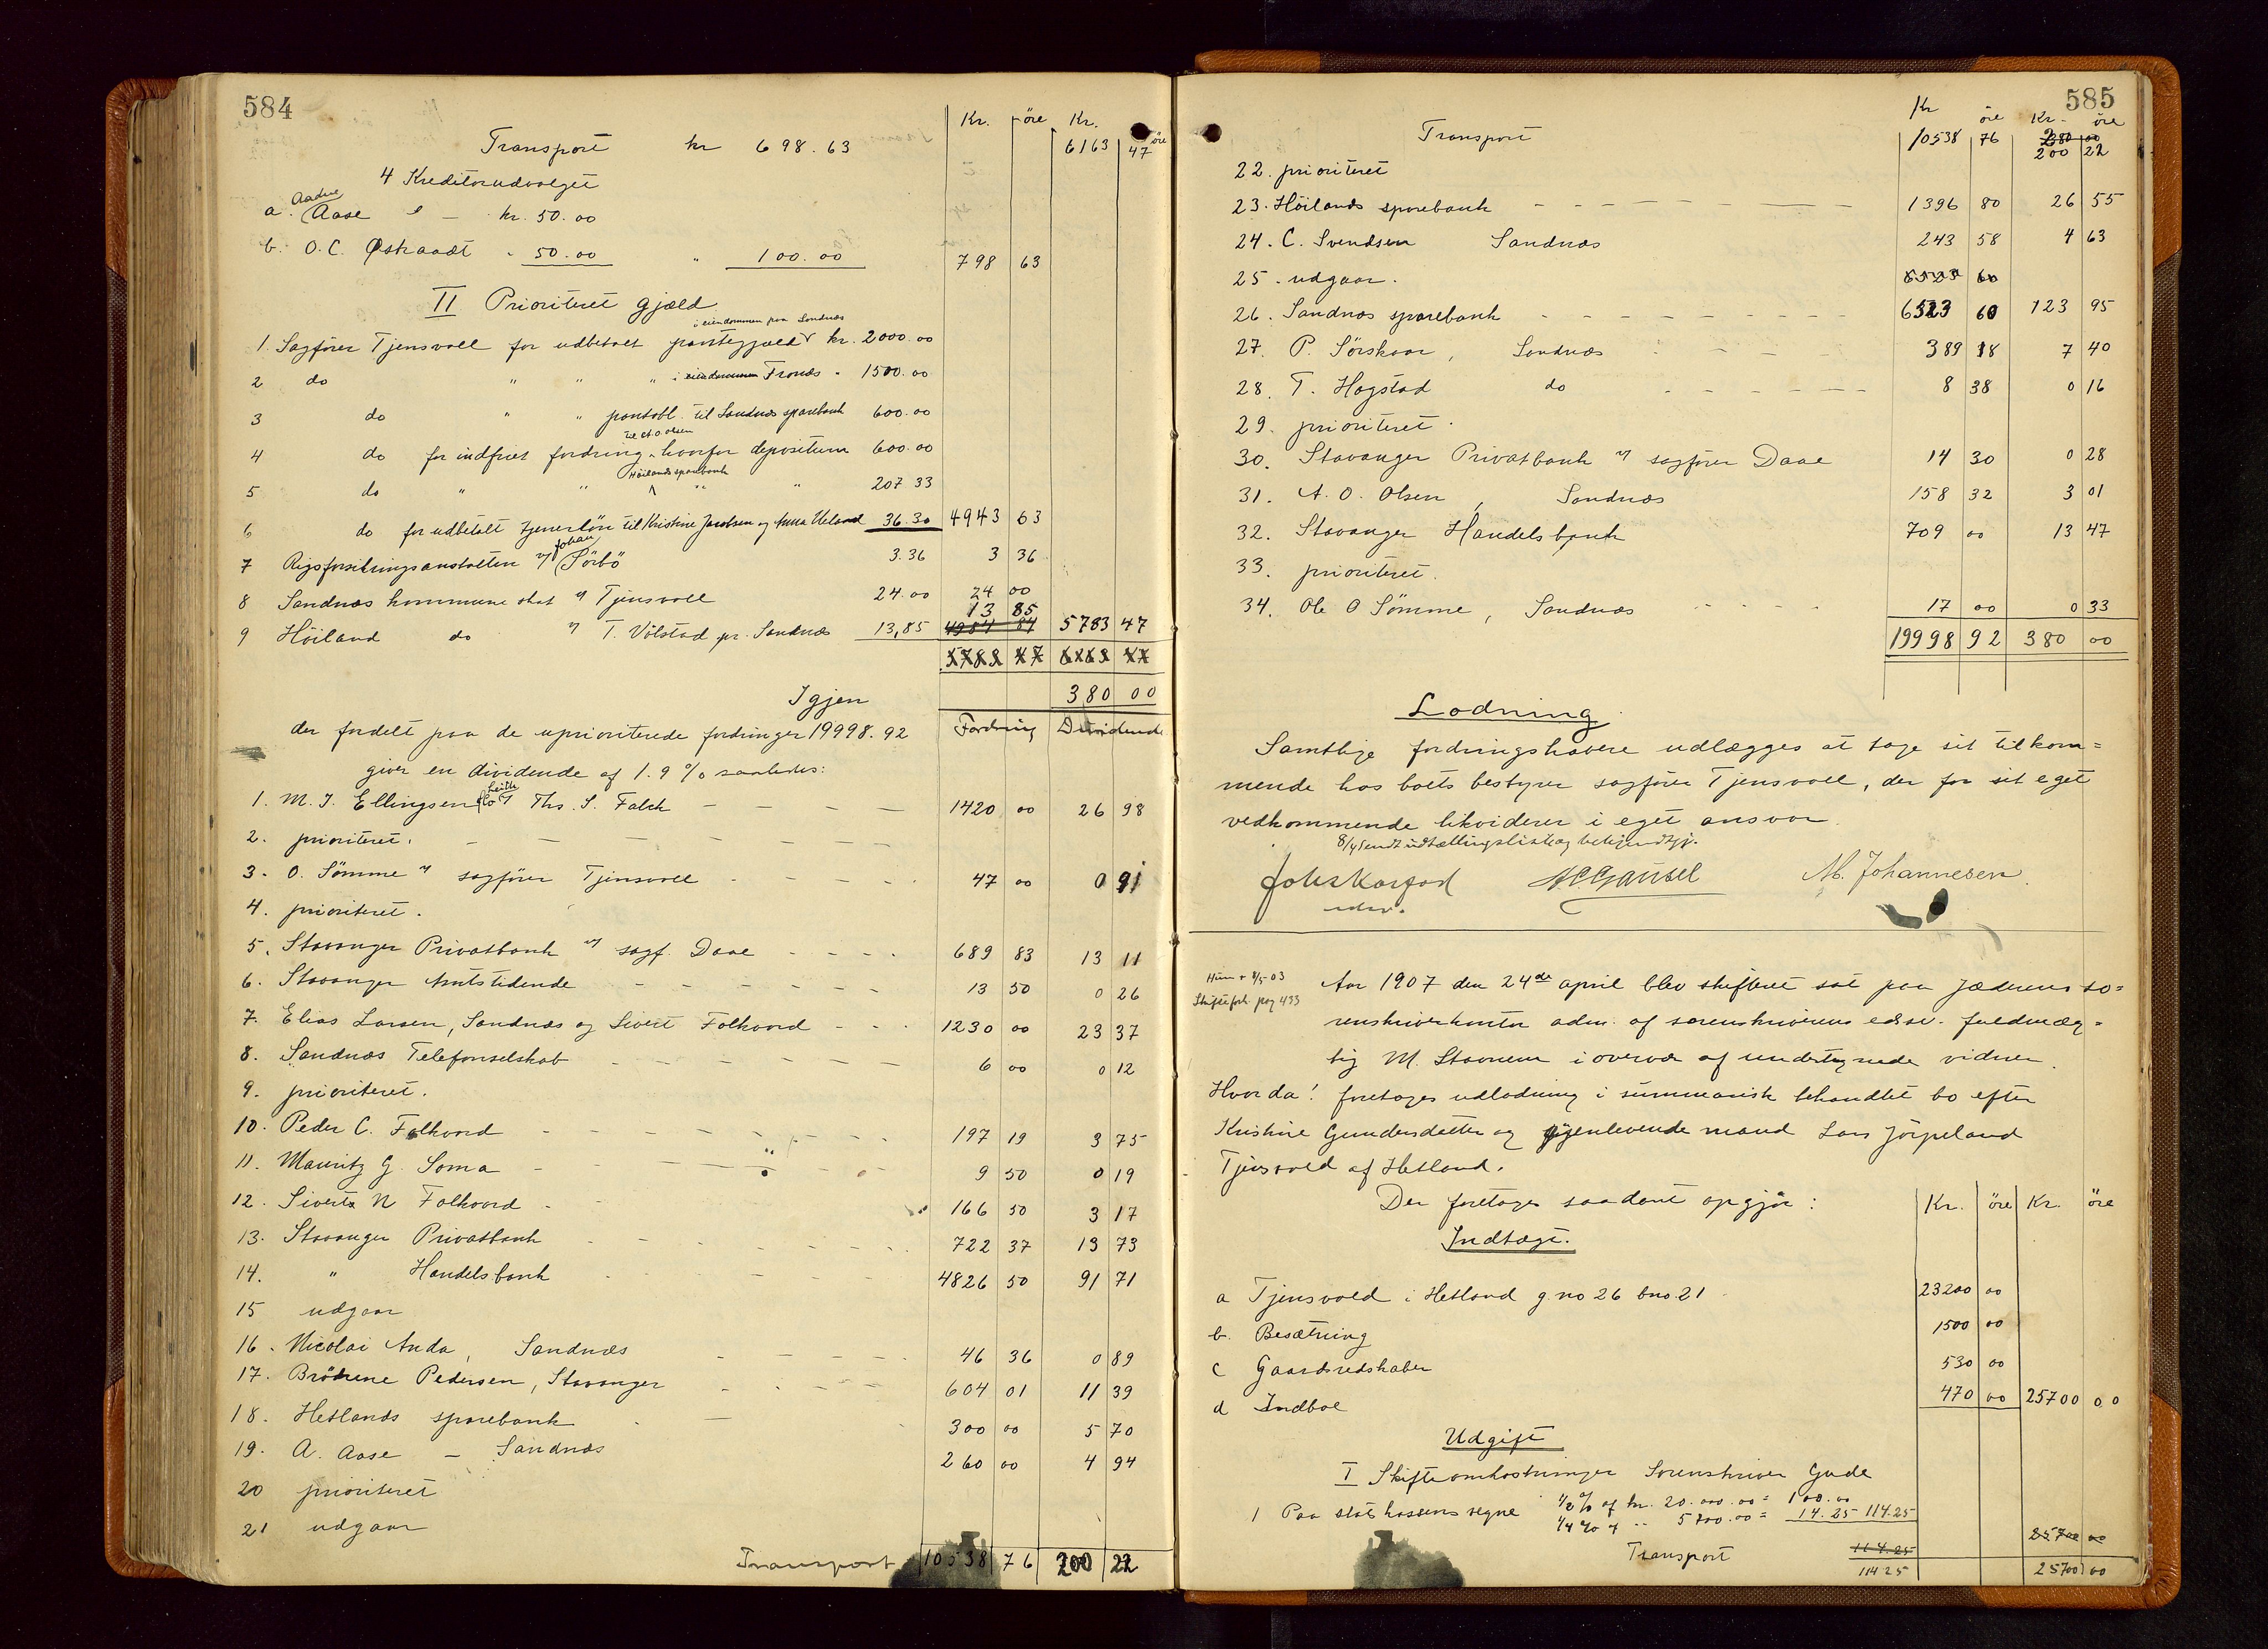 584
Kr. øre Kr. øre
Transport kr 698.63 6163 47
4 Kreditorudvalget
Aadne
a. Aase e – kr. 50.00
b. O. C. Østraadt " 50.00 " 100.00 798 63
II Prioriteret gjæld
i eiendommen paa Sandnæs
1. Sagfører Tjensvoll for udbetalt pantegjæld kr. 2000.00
2 do " " " i eiendommen Fronæs " 1500.00
3 do " " pantobl. til Sandnæs sparebank 600.00
til A O Olsen
4 do for indfriet fordring, hvorfor depositum 600.00
Høilands sparebank
5 do " " " " 207 33
6 do for udbetalt tjenerløn til Kristine Jacobsen og Anna Ueland 36.30 4943 63
Johan
7 Rigsforsikringsanstalten v/ Sörbö 3.36 3 36
8 Sandnæs kommune skat v/ Tjensvoll 24.00 24 00
13 85
9 Höiland do v/ T. Völstad pr. Sandnæs 13,85 4984 84 5783 47
5783 47 6163 47
Igjen 380 00
der fordelt paa de uprioriterede fordringer 19998.92 Fordring Dividende
giver en dividende af 1.9 % saaledes:
1. M. J. Ellingsen & Co v/ Ths. S. Falck – – – – 1420 00 26 98
2. prioriteret. – – – – – –
3. O. Sömme v/ sagfører Tjensvoll - - - - 47 00 0 91
4. prioriteret.
5. Stavanger Privatbank v/ sagf. Daae - - - - 689 83 13 11
6. Stavanger Amtstidende - - - - - - 13 50 0 26
7. Elias Larsen, Sandnæs og Sivert Folkvord - - - 1230 00 23 37
8. Sandnæs Telefonselskab - - - - - - 6 00 0 12
9. prioriteret.
10. Peder C. Folkvord - - - - - - - 197 19 3 75
11. Mauritz G. Soma - - - - - - 9 50 0 19
12. Sivert N Folkvord - - 166 50 3 17
13. Stavanger Privatbank - - - - - - 722 37 13 73
14. " Handelsbank - - - - - 4826 50 91 71
15 udgaar
16. Nicolai Anda, Sandnæs - - - - - 46 36 0 89
17. Brödrene Pedersen, Stavanger - - - - - 604 01 11 39
18. Hetlands sparebank - - 300 00 5 70
19. A. Aase – Sandnæs 260 00 4 94
20 prioriteret
21 udgaar
Transport 10538 76 200 22
585
Kr øre Kr. øre
Transport 10538 76 280 00
200 22
22. prioriteret
23. Höilands sparebank - - - - - - - 1396 80 26 55
24. C. Svendsen Sandnæs 243 58 4 63
25. udgaar. 6523 60
26. Sandnæs sparebank - - - - - - - - - 6523 60 123 95
27. P. Sörskaar, Sandnæs - - - - 389 18 7 40
28. T. Hogstad do - - - - - - 8 38 0 16
29. prioriteret.
30. Stavanger Privatbank v/ sagfører Daae 14 30 0 28
31. A. O. Olsen, Sandnæs 158 32 3 01
32. Stavanger Handelsbank 709 00 13 47
33. prioriteret.
34. Ole O Sömme, Sandnæs - - - - - 17 00 0 33
19998 92 380 00
Lodning
Samtlige fordringshavere udlægges at tage sit tilkom=
mende hos boets bestyrer sagfører Tjensvoll, der for sit eget
vedkommende likviderer i eget ansvar.
8/4 sendt udtællingsliste og bekjendtgj.
M. Johannesen
Aar 1907 den 24de april blev skifteret sat paa Jæderens so=
Skifteprot. pag 433
renskriverkontor adm. af sorenskriverens edsv. fuldmæg=
tig M. Stavnem i overvær af undertegnede vidner.
Hvorda! foretages udlodning i summarisk behandlet bo efter
Kristine Gundersdatter og gjenlevende mand Lars Jörpeland
Tjensvold af Hetland.
Der foretages saadant opgjör: Kr. øre Kr. øre
Indtægt.
a Tjensvold i Hetland g.no 26 bno. 21 23200 00
b. Besætning 1500 00
c Gaardsredskaber 530 00
d Indboe 470 00 25700 00
Udgift
I Skifteomkostninger Sorenskriver Gude
1 Paa statskassens vegne 1/2 % af kr. 20.000.00 = 100.00
1/4 % " " 5700.00 = 14.25 114.25
25700 00
Transport 114.25
114 25 25700 00